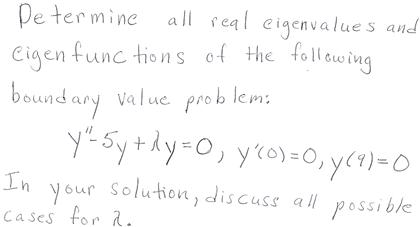 Determine all real eigenvalues and
eigenfunctions of the following
boundary value problem:
y"-5y+λy=0, y'(0)=0, y(9)=0
In your solution, discuss all possible
cases for λ.